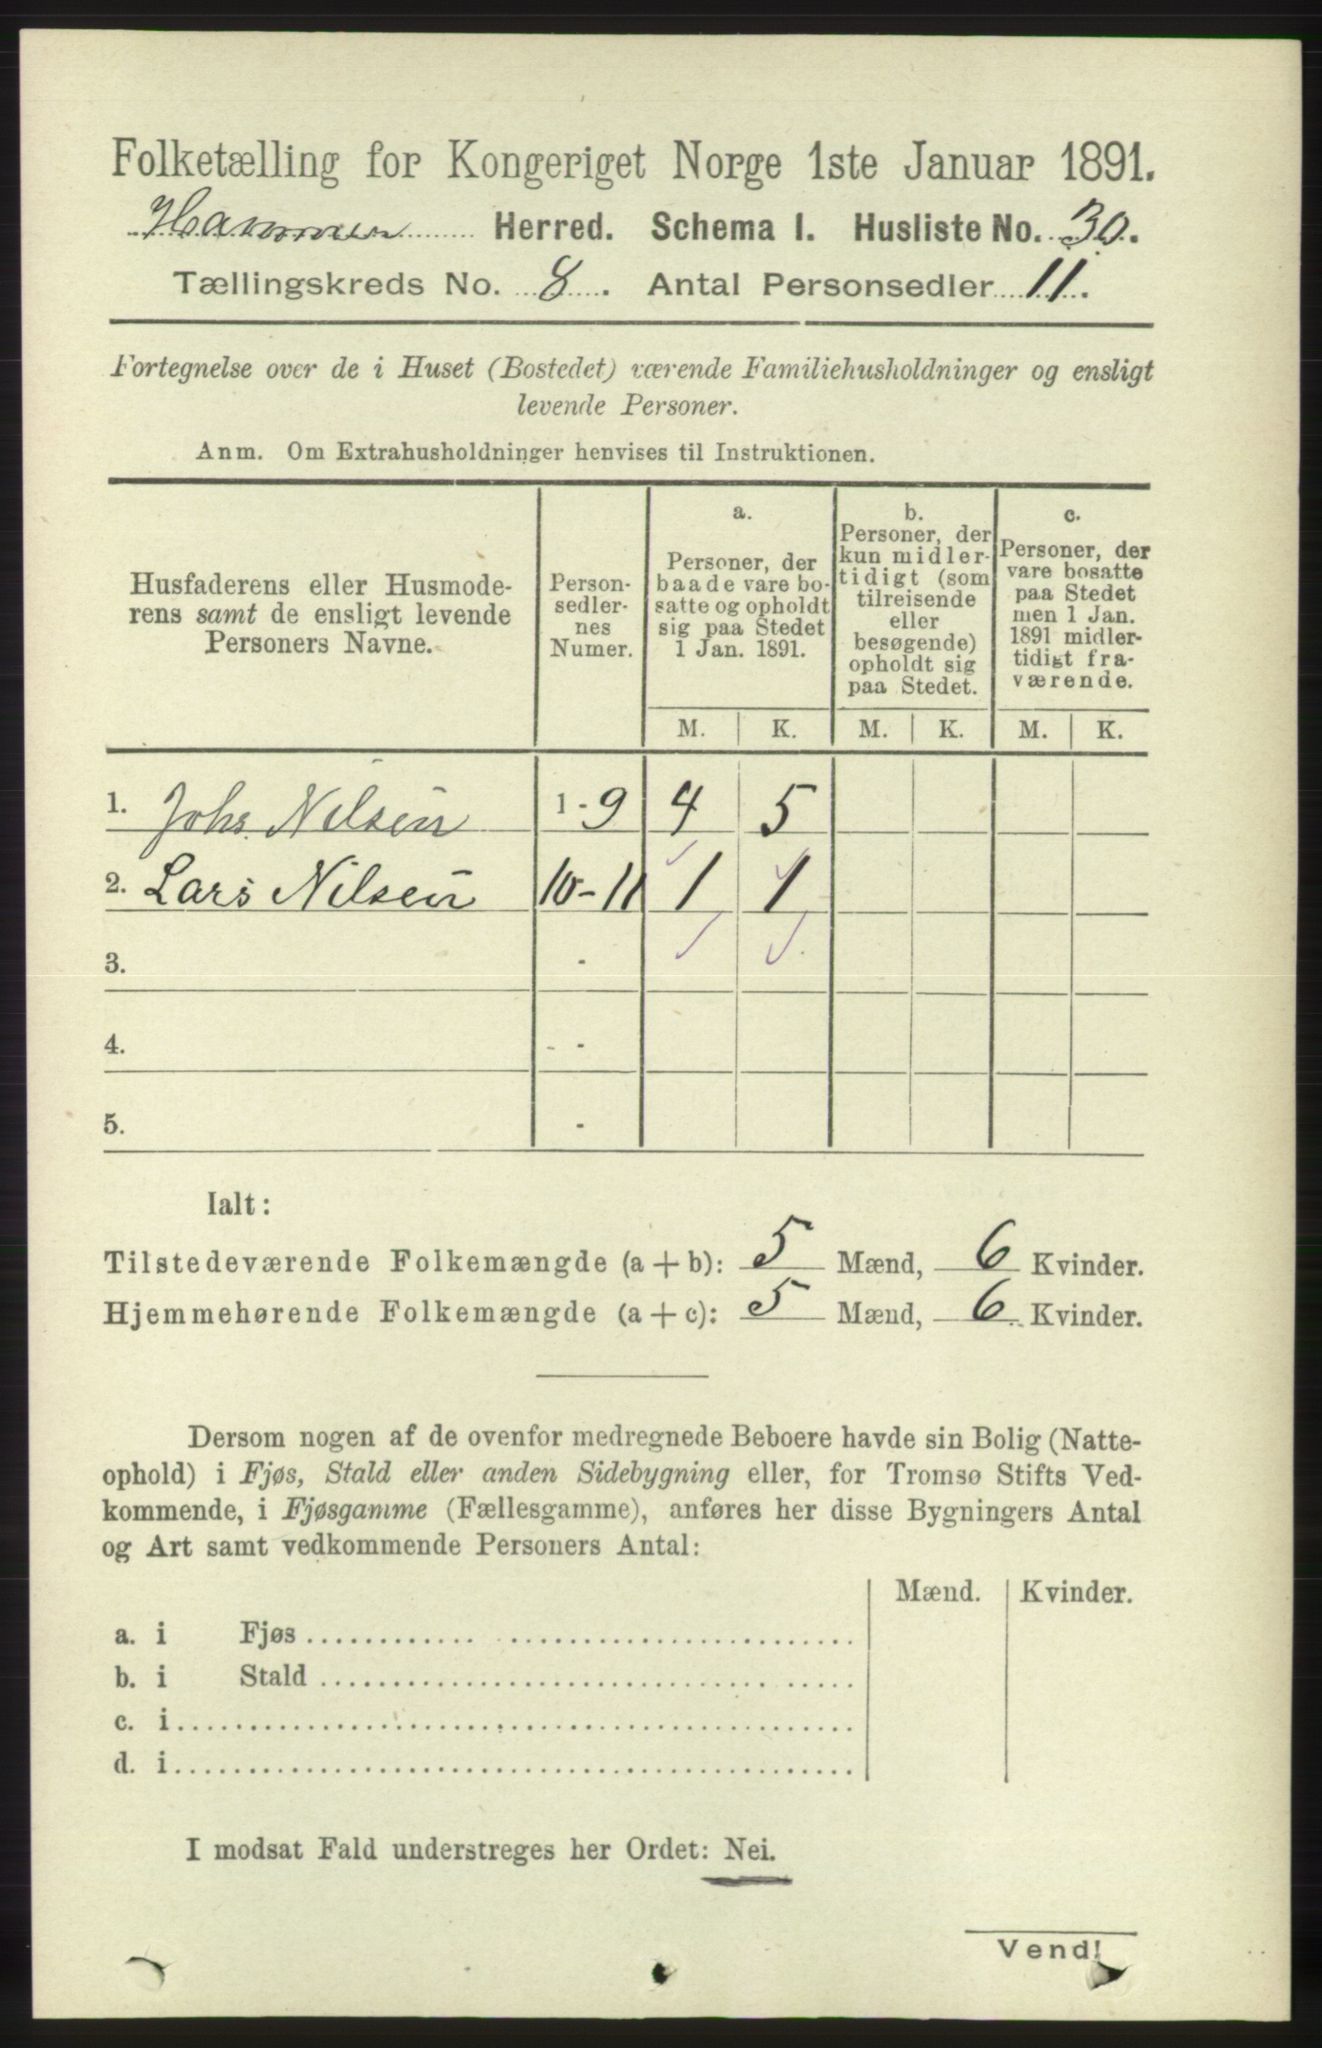 Folketælling for Kongeriget Norge 1ste Januar 1891.
Hammer Herred. Schema I. Husliste No. 30.
Tællingskreds No. 8. Antal Personsedler 11.
Fortegnelse over de i Huset (Bostedet) værende Familiehusholdninger og ensligt
levende Personer.
Anm. Om Extrahusholdninger henvises til Instruktionen.
Husfaderens eller Husmode-
rens samt de ensligt levende
Personers Navne.
Person-
sedler-
nes
Numer.
a.
Personer, der
baade vare bo-
satte og opholdt
sig paa Stedet
1 Jan. 1891.
b.
Personer, der
kun midler-
tidigt (som
tilreisende
eller
besøgende)
opholdt sig
paa Stedet.
c.
Personer, der
vare bosatte
paa Stedet
men 1 Jan.
1891 midler-
tidigt fra-
værende.
M. K. M. K. M. K.
1. Johs. Nilsen 1 - 9 4 5
2. Lars Nilsen 10 - 11 1 1
3. -
4. - -
5. -
Ialt:
Tilstedeværende Folkemængde (a + b): 5 Mænd, 6 Kvinder.
Hjemmehørende Folkemængde (a + c): 5 Mænd, 6 Kvinder.
Dersom nogen af de ovenfor medregnede Beboere havde sin Bolig (Natte-
ophold) i Fjøs, Stald eller anden Sidebygning eller, for Tromsø Stifts Ved-
kommende, i Fjøsgamme (Fællesgamme), anføres her disse Bygningers Antal
og Art samt vedkommende Personers Antal:
Mænd. Kvinder.
a. i Fjøs
b. i Stald
c. i
d. i
I modsat Fald understreges her Ordet: Nei.
Vend!